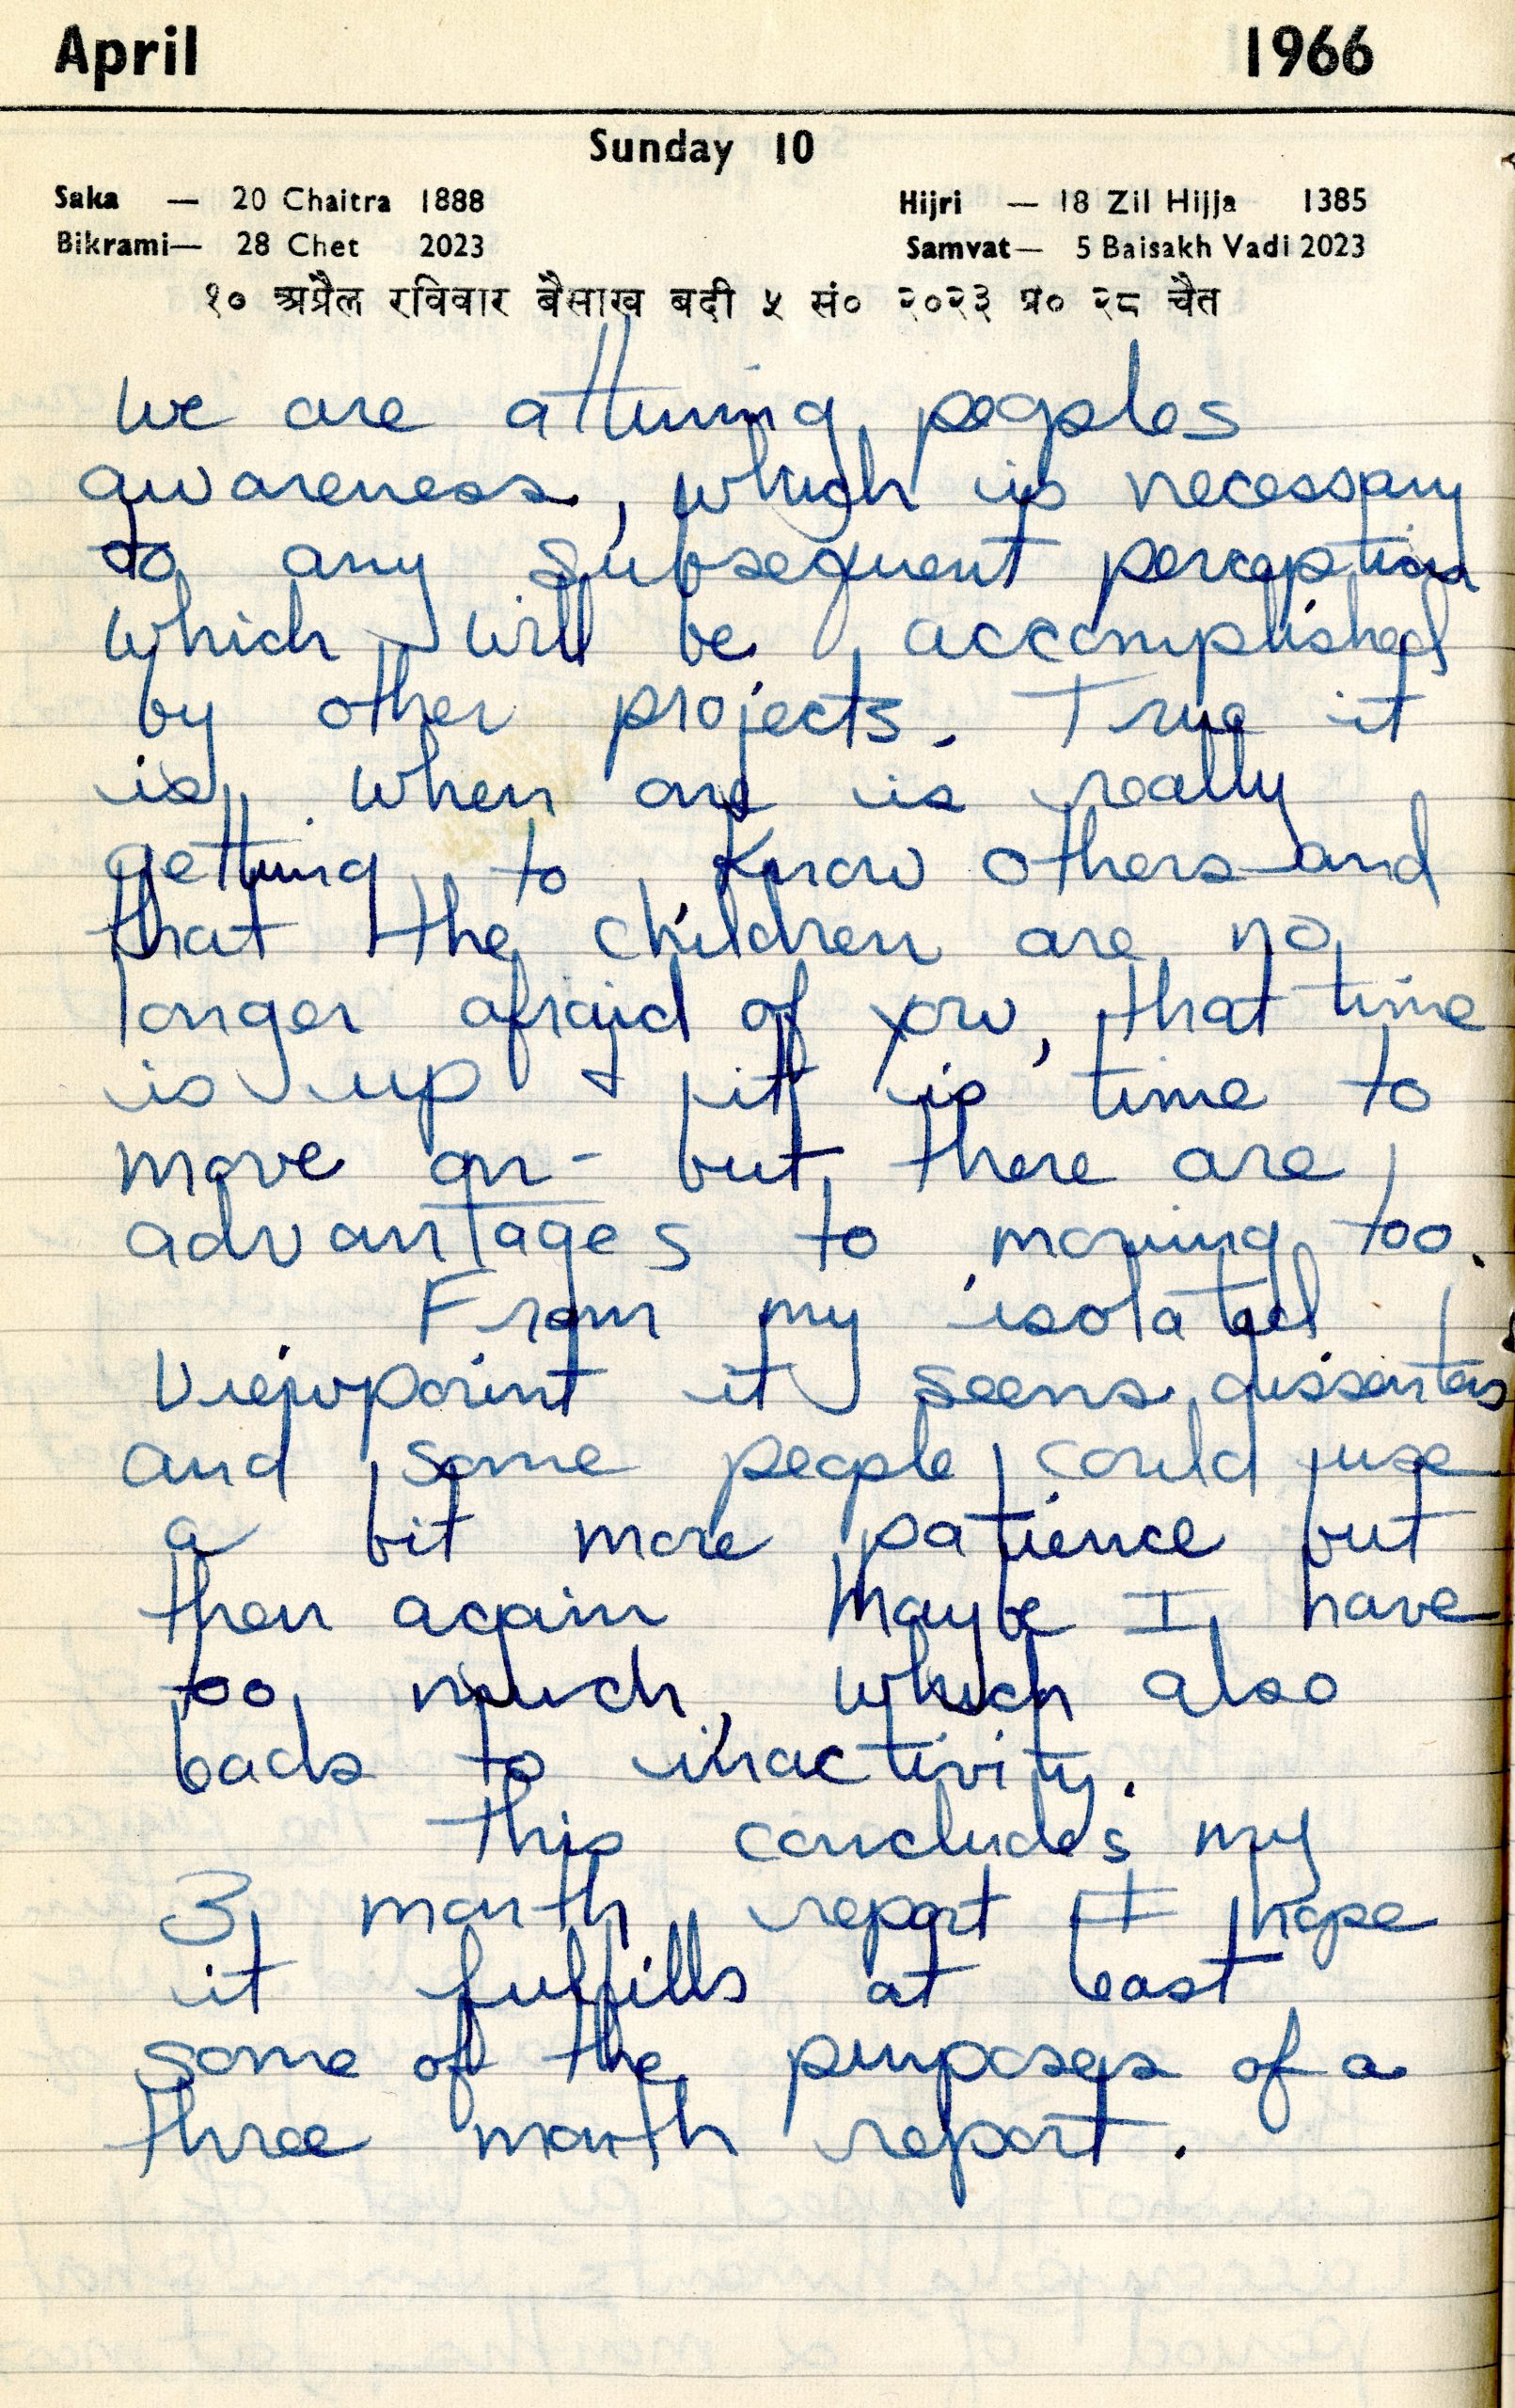 April 1966
Sunday 10
Saka — 20 Chaitra 1888 Hijri — 18 Zil Hijja 1385
Bikrami— 28 Chet 2023 Samvat— 5 Baisakh Vadi 2023
१० अप्रैल रविवार बैसाख बदी ५ सं० २०२३ प्र० २८ चैत
We are attuning peoples
awareness, which is necessary
to any subsequent perception
which will be accomplished
by other projects. True it
is, when one is really
getting to know others and
that the children are no
longer afraid of you, that time
is up & it is time to
move on - but there are
advantages to moving too.
From my isolated
viewpoint it seems dissenters
and some people could use
a bit more patience but
then again maybe I have
too much, which also
leads to inactivity.
This concludes my
3 month report I hope
it fulfills at least
some of the purposes of a
three month report.